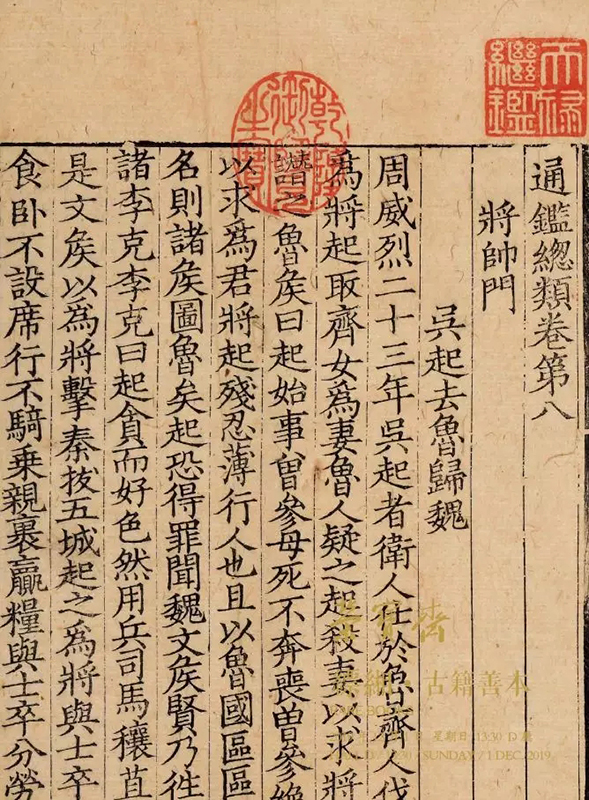 天祿繼鑑
乾隆御覽之寶
通鑑緫類卷第八
將帥門
吳起去魯歸魏
周威烈二十三年吳起者衛人仕於魯齊人伐
爲將起取齊女爲妻魯人疑之起殺妻以求將
譖之魯矦曰起始事曾參母死不奔喪曾參絶
以求爲君將起殘忍薄行人也且以魯國區區
名則諸矦圖魯矣起恐得罪聞魏文矦賢乃徃
諸李克李克曰起貪而好色然用兵司馬穰苴
是文矦以爲將擊秦拔五城起之爲將與士卒
食卧不設席行不騎乗親裹贏糧與士卒分勞
古籍善本
星期日 13:30
SUNDAY / 1 DEC. 2019